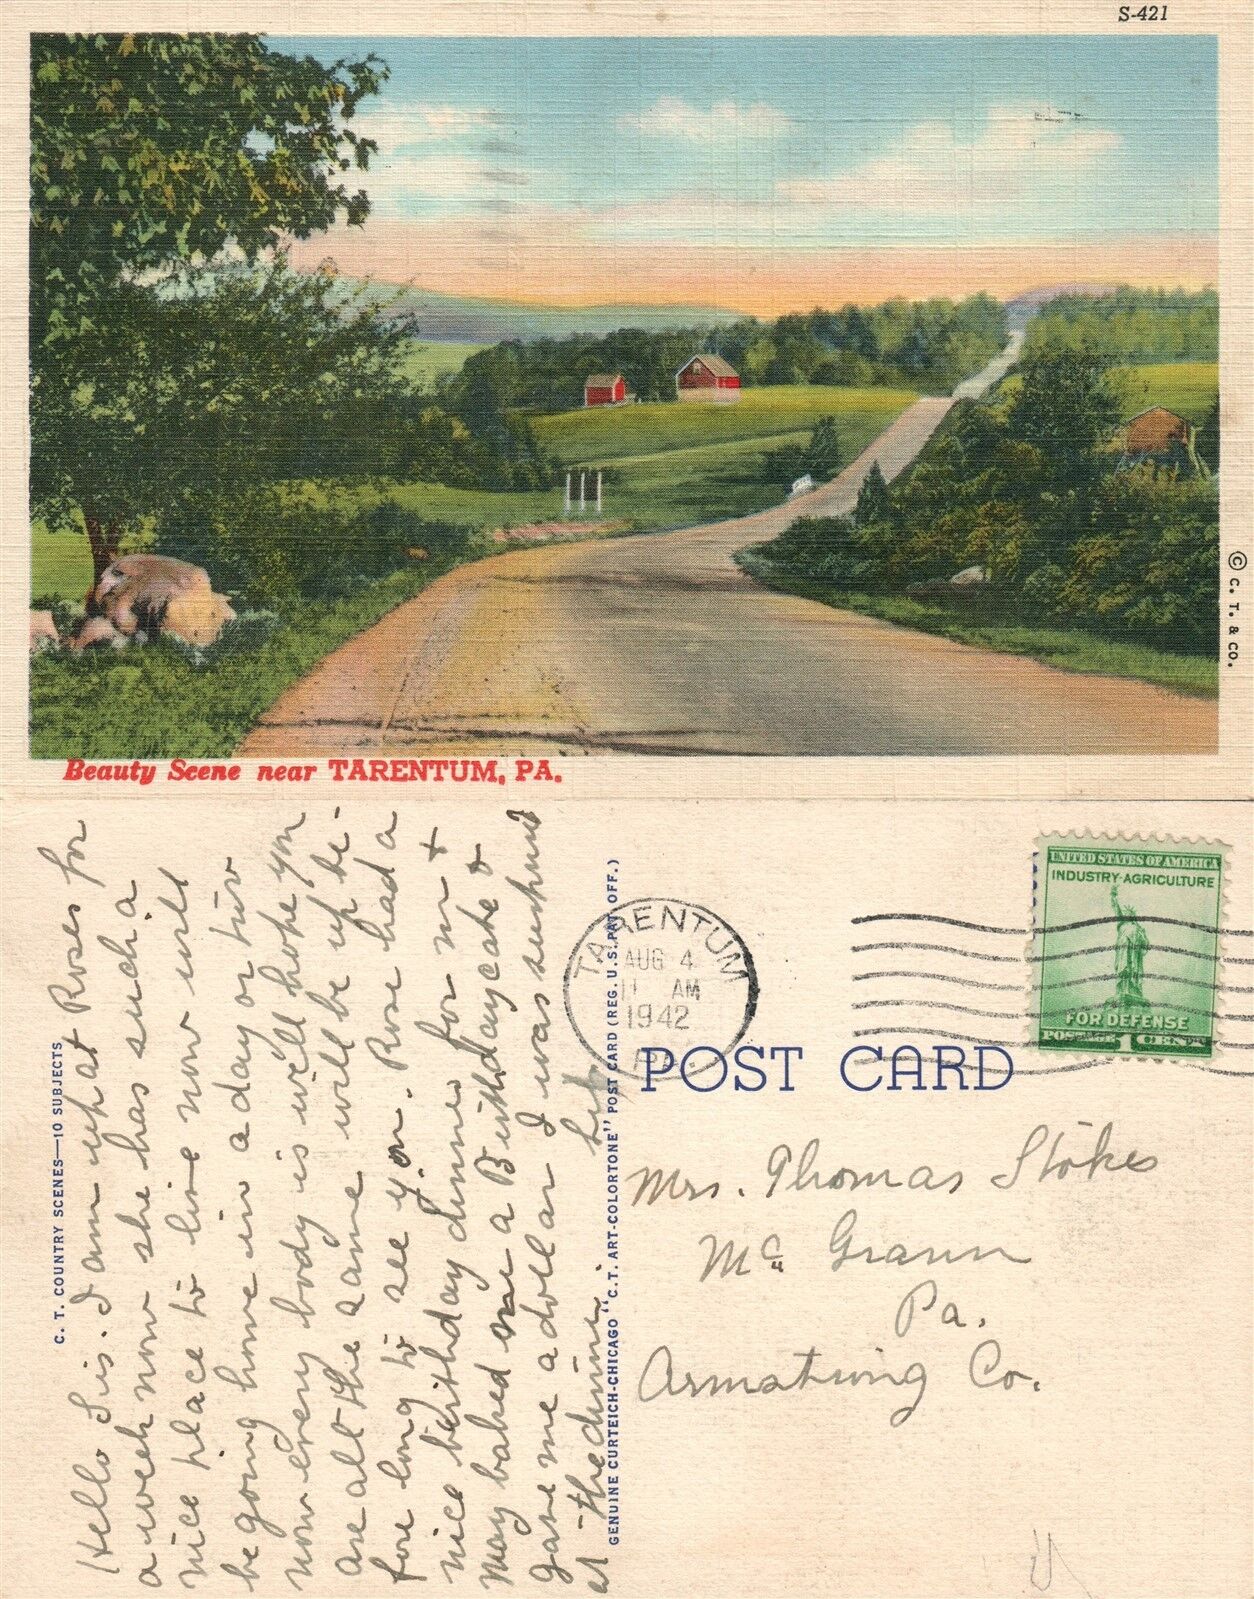 S-421
© C. T. & CO.
Beauty Scene near TARENTUM, PA.
C. T. COUNTRY SCENES—10 SUBJECTS
Hello Sis. I am up at Roses for
a week now she has such a
nice place to live now will
be going home in a day or two
now every body is well hope you
are all the same will be up be-
fore long to see you. Rose had a
nice birthday dinner for me +
May baked me a Birthday cake &
gave me a dollar I was surprised
at the dinner.
GENUINE CURTEICH-CHICAGO "C.T. ART-COLORTONE" POST CARD (REG. U.S. PAT. OFF.)
TARENTUM
AUG 4
11 AM
1942
PA.
UNITED STATES OF AMERICA
INDUSTRY·AGRICULTURE
FOR DEFENSE
POSTAGE 1 CENT
POST CARD
Mrs. Thomas Stokes
Mc Grann
Pa.
Armstrong Co.